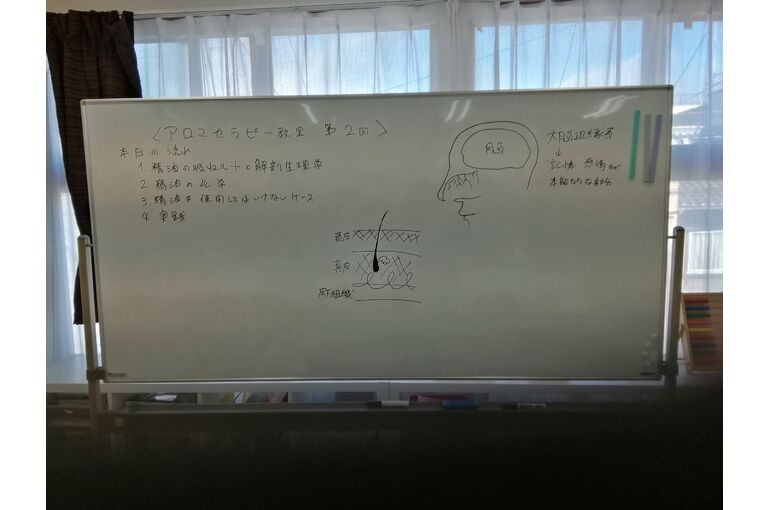 〈アロマセラピー教室 第2回〉
本日の流れ
1. 精油の吸収ルートと解剖生理学
2. 精油の化学
3. 精油を使用してはいけないケース
4. 実践
脳
大脳辺縁系
↓
記憶・感情など
本能的な部分
表皮
真皮
皮下組織